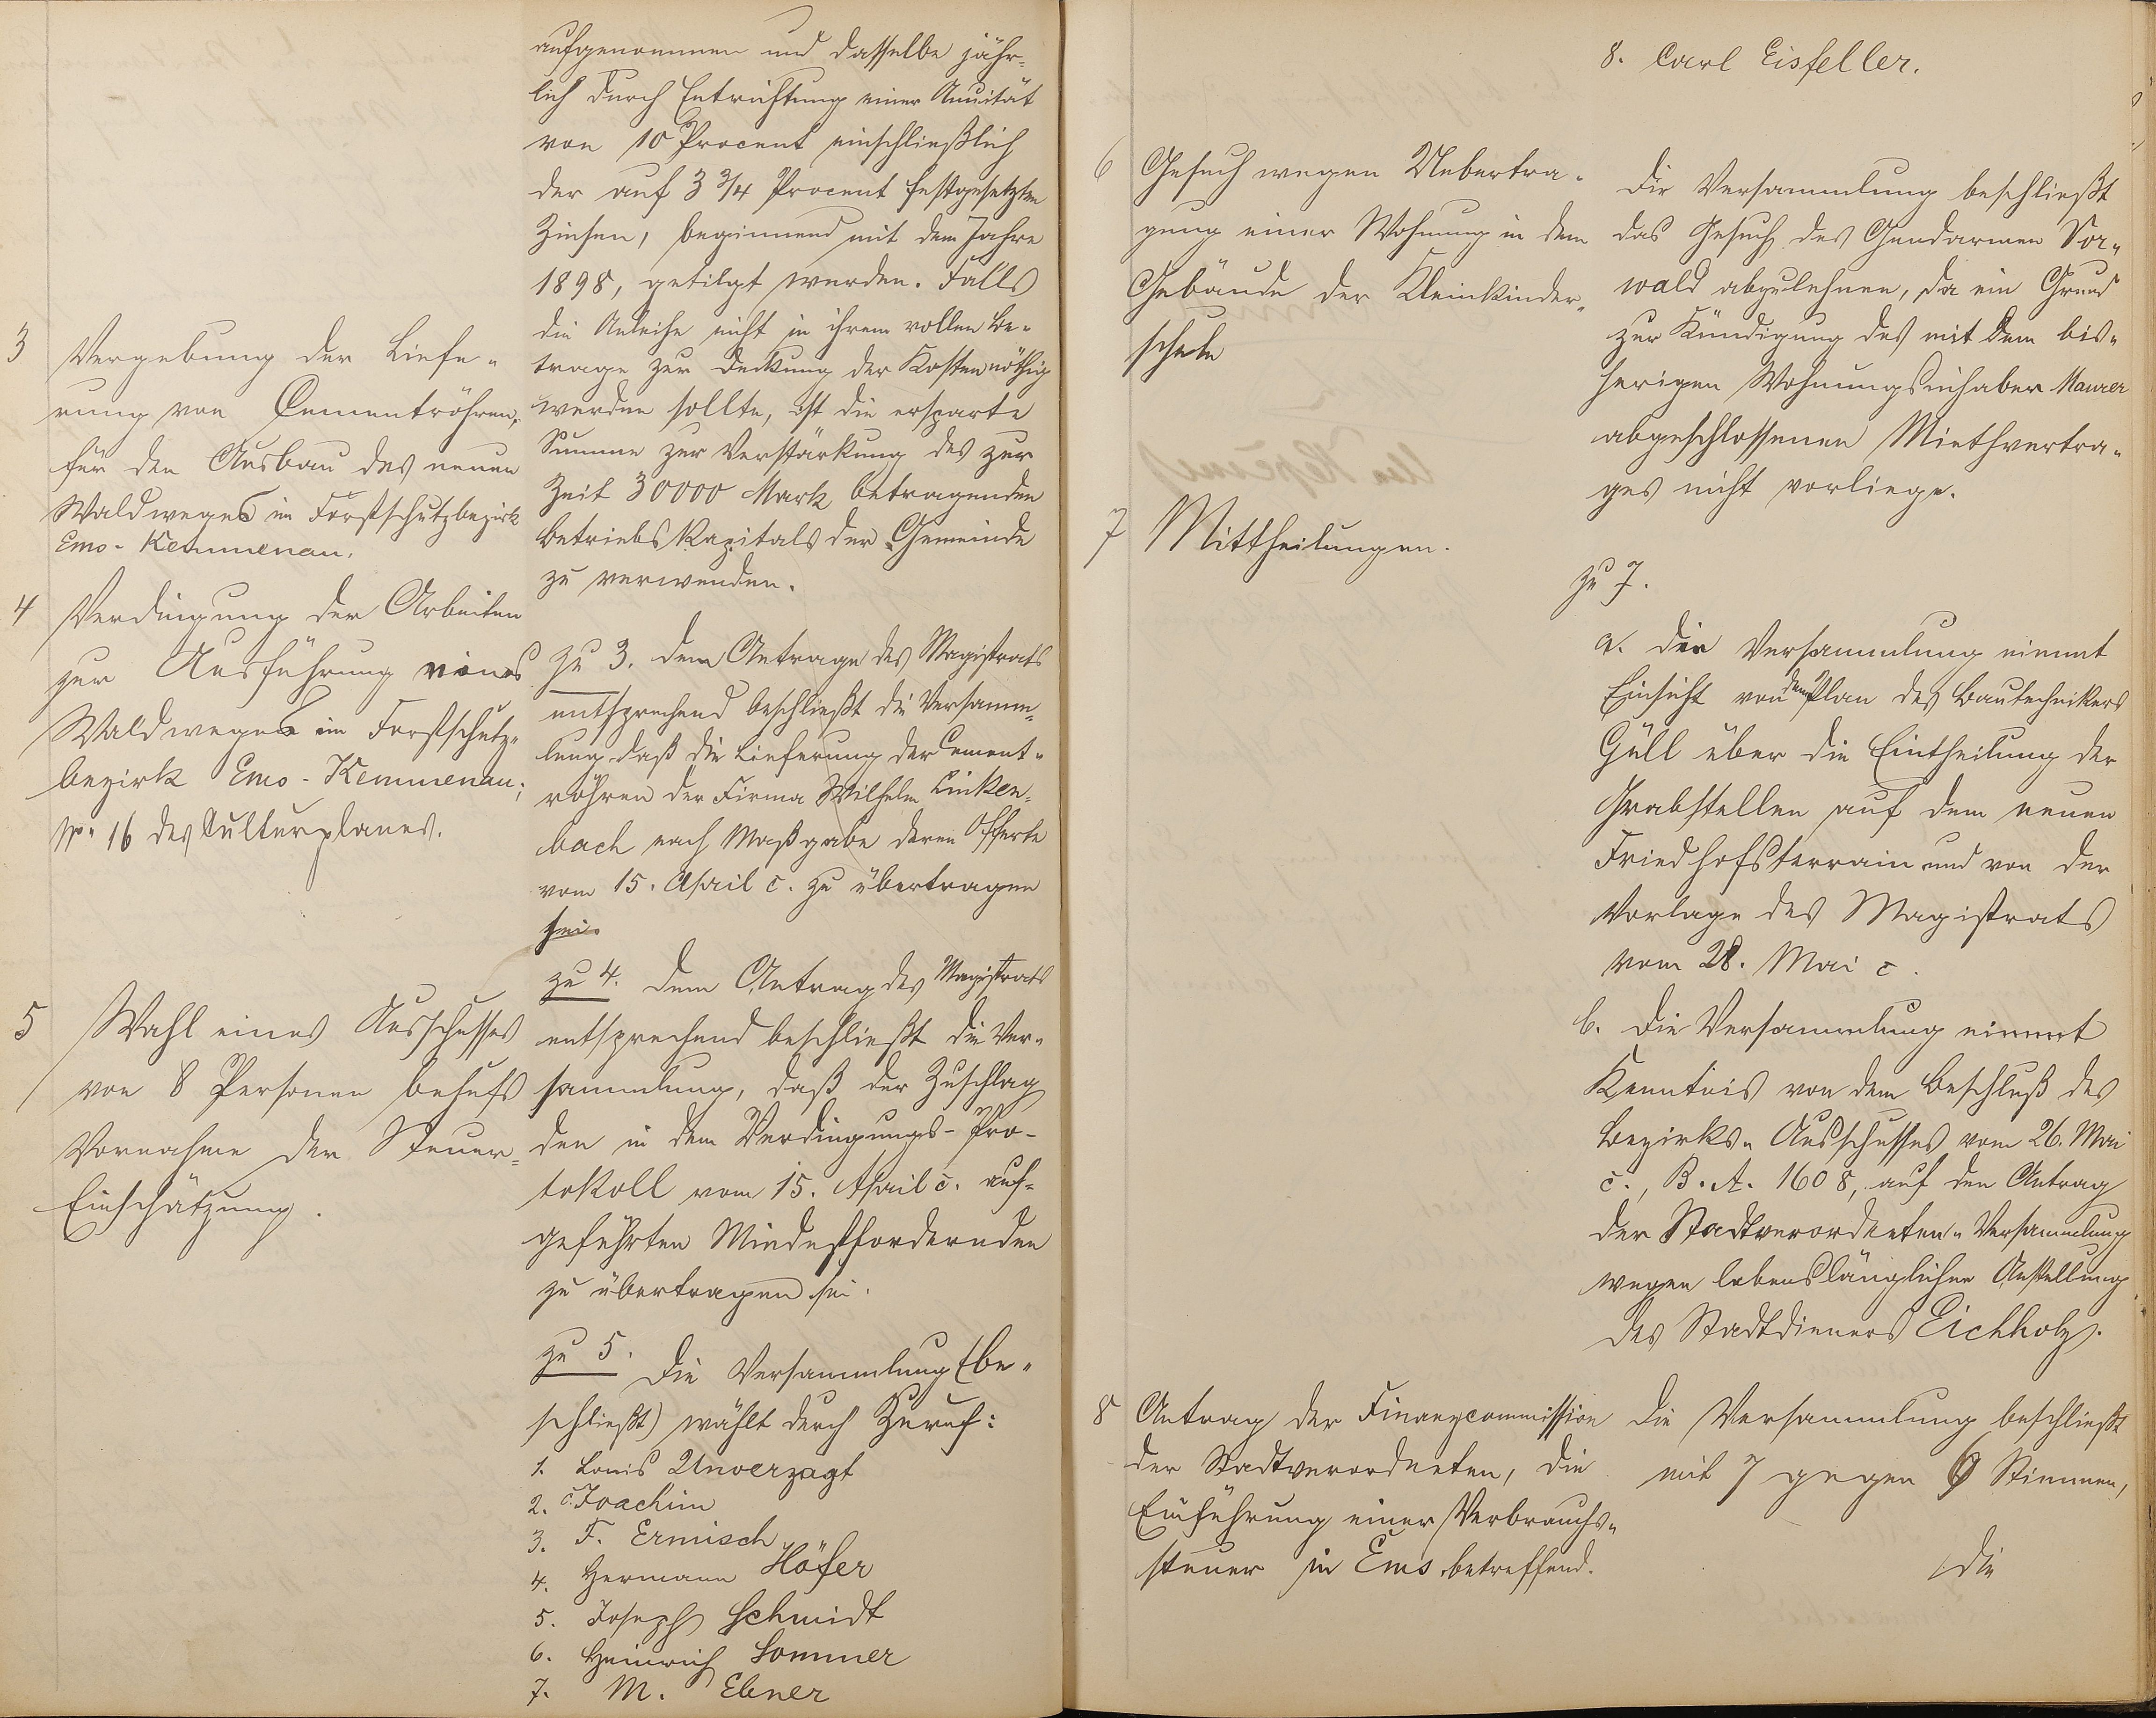 aufgenommen und dasselbe jähr-
lich durch Entrichtung einer Annuität
von 10 Procent einschließlich
der auf 3 3/4 Procent festgesetzten
Zinsen, beginnend mit dem Jahre
1898, getilgt werden. Falls
die Anleihe nicht in ihrem vollen Be-
trage zur Deckung der Kosten nöthig
werden sollte, ist die ersparte
Summe zur Verstärkung des zur
Zeit 30000 Mark betragenden
Betriebskapitals der Gemeinde
zu verwenden.
3 Vergebung der Liefe-
rung von Cementröhren,
für den Ausbau des neuen
Waldweges im Forstschutzbezirk
Ems-Kemmenau.
zu 3. Dem Antrage des Magistrats
entsprechend beschließt die Versamm-
lung daß die Lieferung der Cement-
röhren der Firma Wilhelm Linken-
bach nach Maßgabe deren Offerte
vom 15. April c. zu übertragen
sei.
4 Verdingung der Arbeiten
zur Ausführung eines
Waldweges im Forstschutz-
bezirk Ems-Kemmenau;
No. 16 des Culturplanes.
zu 4. Dem Antrag des Magistrats
entsprechend beschließt die Ver-
sammlung, daß der Zuschlag
den in dem Verdingungs-Pro-
tokoll vom 15. April c. auf-
geführten Mindestfordernden
zu übertragen sei.
5 Wahl eines Ausschusses
von 8 Personen behufs
Vornahme der Steuer-
Einschätzung.
zu 5. Die Versammlung (be-
schließt) wählt durch Zuruf:
1. Louis Unverzagt
2. C. Joachim
3. F. Ermisch
4. Hermann Höfer
5. Joseph Schmidt
6. Heinrich Sommer
7. M. Ebner
8. Carl Eisfeller.
6 Gesuch wegen Uebertra-
gung einer Wohnung in dem
Gebäude der Kleinkinder-
schule
Die Versammlung beschließt
das Gesuch des Gendarmen Vor-
wald abzulehnen, da ein Grund
zur Kündigung des mit dem bis-
herigen Wohnungsinhaber Maurer
abgeschlossenen Miethvertra-
ges nicht vorliege.
7 Mittheilungen.
zu 7.
a. Die Versammlung nimmt
Einsicht von dem Plan des Bautechnikers
Güll über die Eintheilung der
Grabstellen auf dem neuen
Friedhofsterrain und von der
Vorlage des Magistrats
vom 28. Mai c.
b. Die Versammlung nimmt
Kenntnis von dem Beschluß des
Bezirks-Ausschusses vom 26. Mai
c., B.A. 1608, auf den Antrag
der Stadtverordneten-Versammlung
wegen lebenslänglicher Anstellung
des Stadtdieners Eichholz.
8 Antrag der Finanzcommission
der Stadtverordneten, die
Einführung einer Verbrauchs-
steuer in Ems betreffend.
Die Versammlung beschließt
mit 7 gegen 6 Stimmen,
die